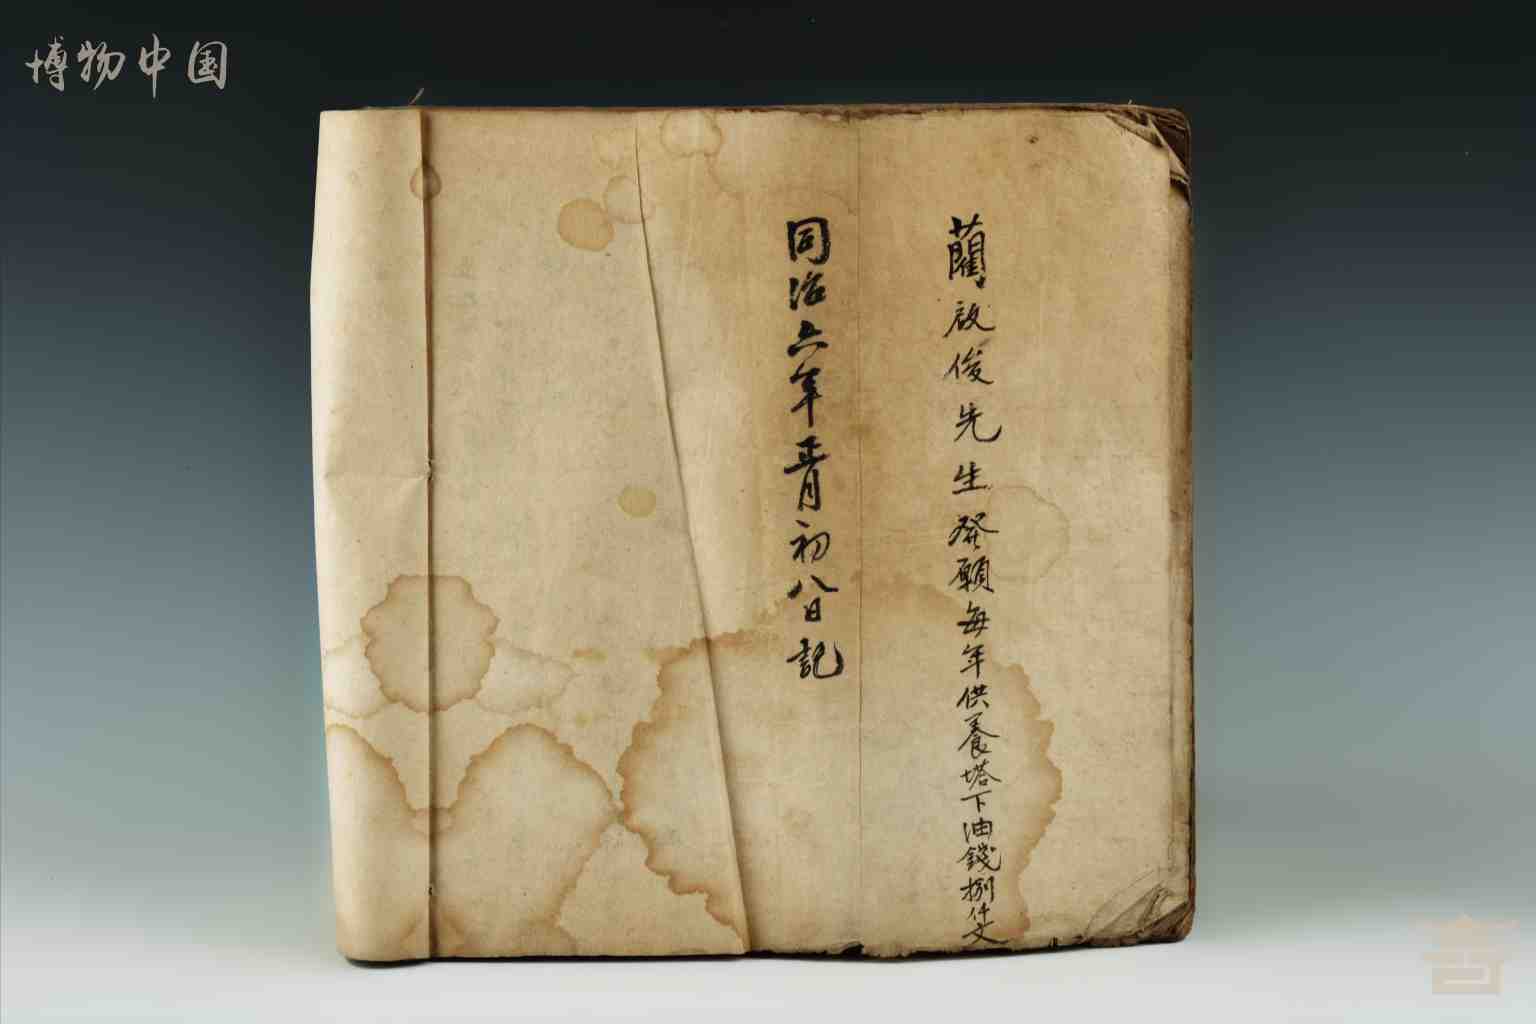 博物中国
蘭啟俊先生發願每年供養塔下油錢捌仟文
同治六年正月初八日記